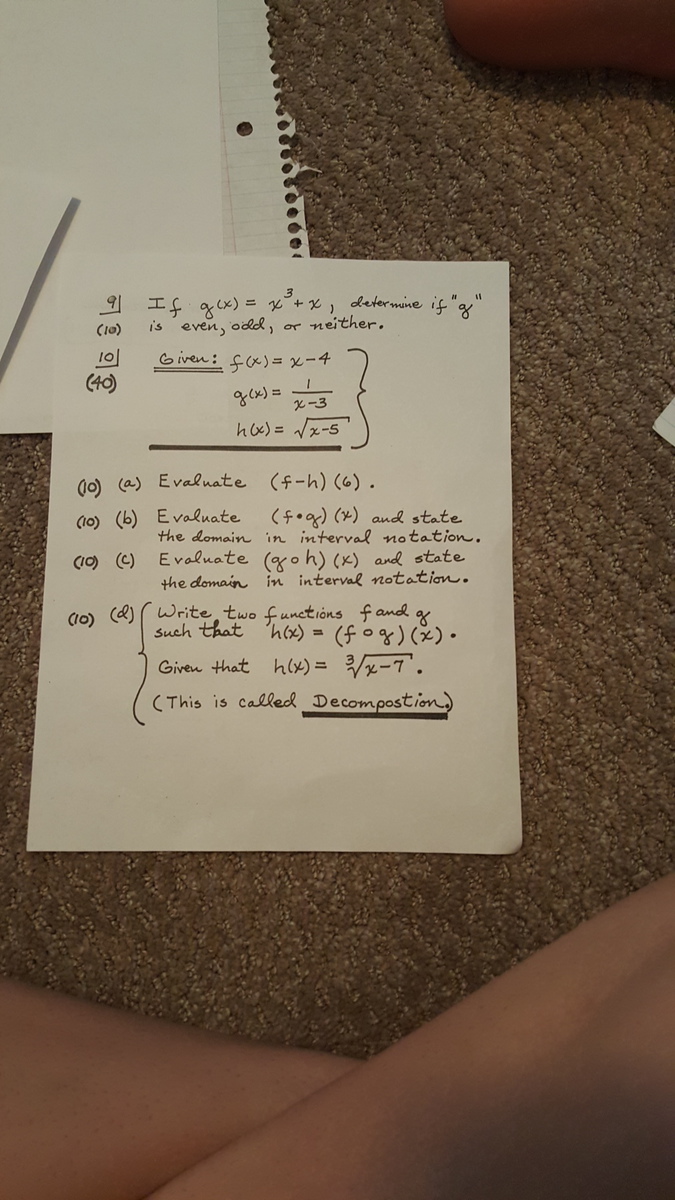 9| If g(x) = x³ + x, determine if "g"
(10) is even, odd, or neither.
10| Given: f(x) = x-4
(40) g(x) = 1/(x-3)
h(x) = √(x-5)
(10) (a) Evaluate (f-h)(6).
(10) (b) Evaluate (f•g)(x) and state
the domain in interval notation.
(10) (c) Evaluate (g∘h)(x) and state
the domain in interval notation.
(10) (d) Write two functions f and g
such that h(x) = (f∘g)(x).
Given that h(x) = ∛(x-7).
(This is called Decompostion.)